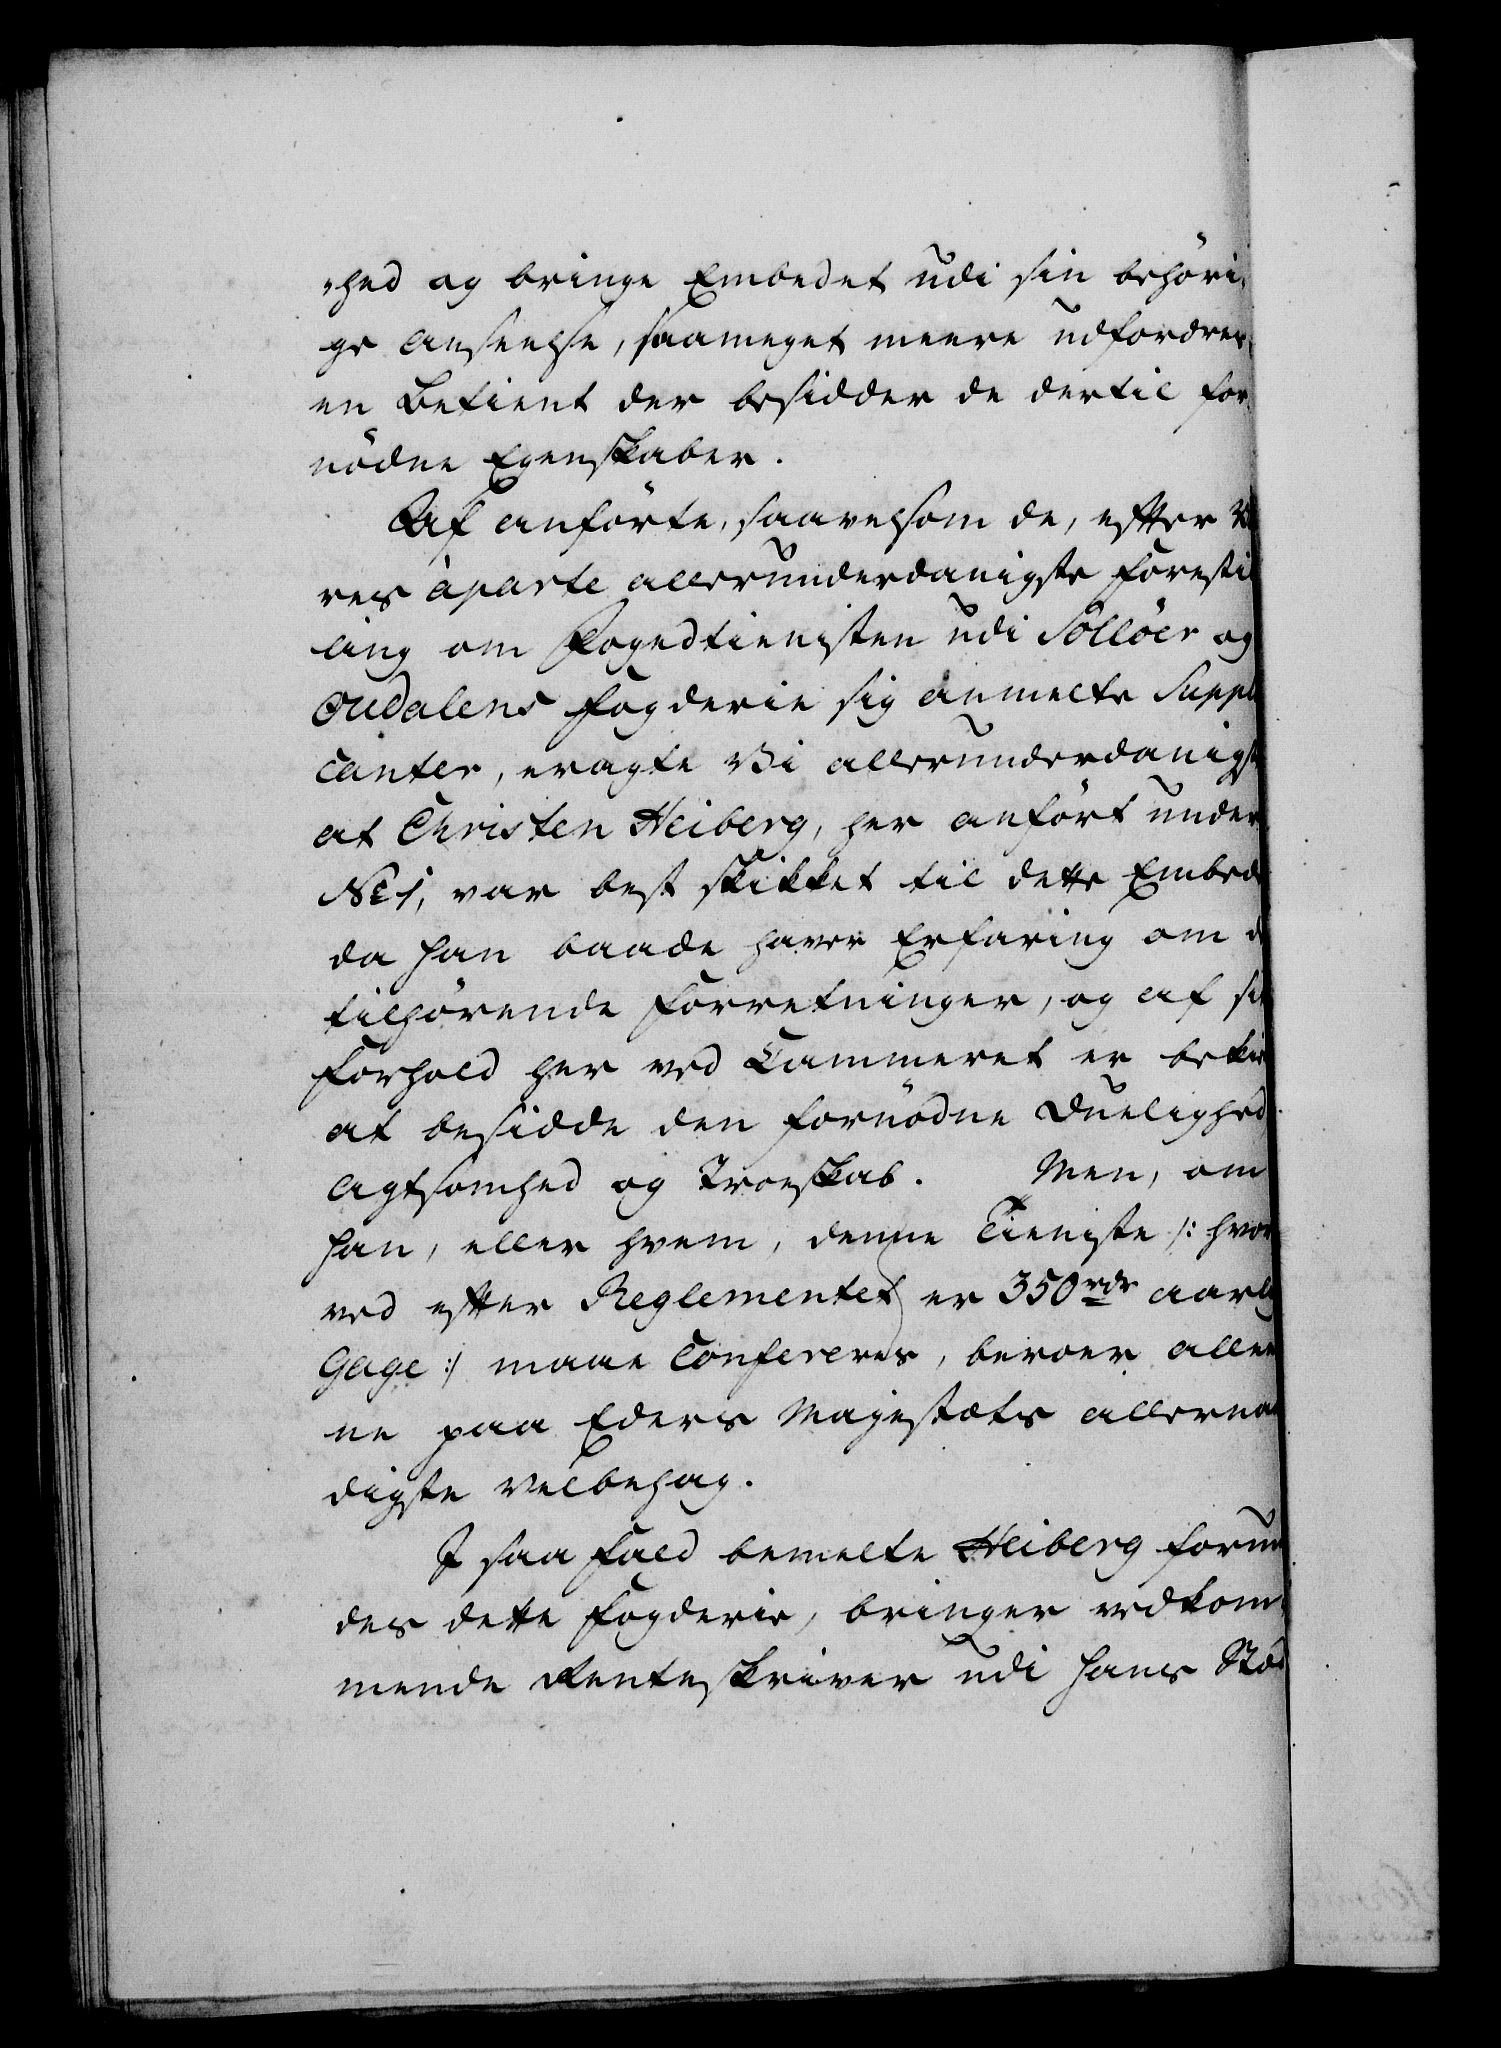 -hed og bringe Embedet udi sin behöri-
ge Anseelse, saameget meere udfordres
en Betient der besidder de dertil for-
nödne Egenskaber.
Af anförte, saavelsom de, efter Vo
res àparte allerunderdanigste Forestil
ling om Fogedtienisten udi Sollöer og
Oudalens Fogderie sig anmelte Suppli
canter, eragte Vi allerunderdanigst
at Christen Heiberg, her anfört under
No 1, var best skikket til dette Embede
da han baade haver Erfaring om d
tilhörende Forretninger, og af sit
Forhold her ved Cammeret er bekien
at besidde den fornödne Duelighed,
Agtsomhed og Troeskab. Men, om
han, eller hvem, denne Tieniste /: hvor
ved efter Reglementet er 350 rdr aarlig
Gage :/ maae Confereres, beroer allee
ne paa Eders Majestæts allernaa
digste Velbehag.
I saa Fald bemelte Heiberg forun
des dette Fogderie, bringer vedkom-
mende Renteskriver udi hans Stæd